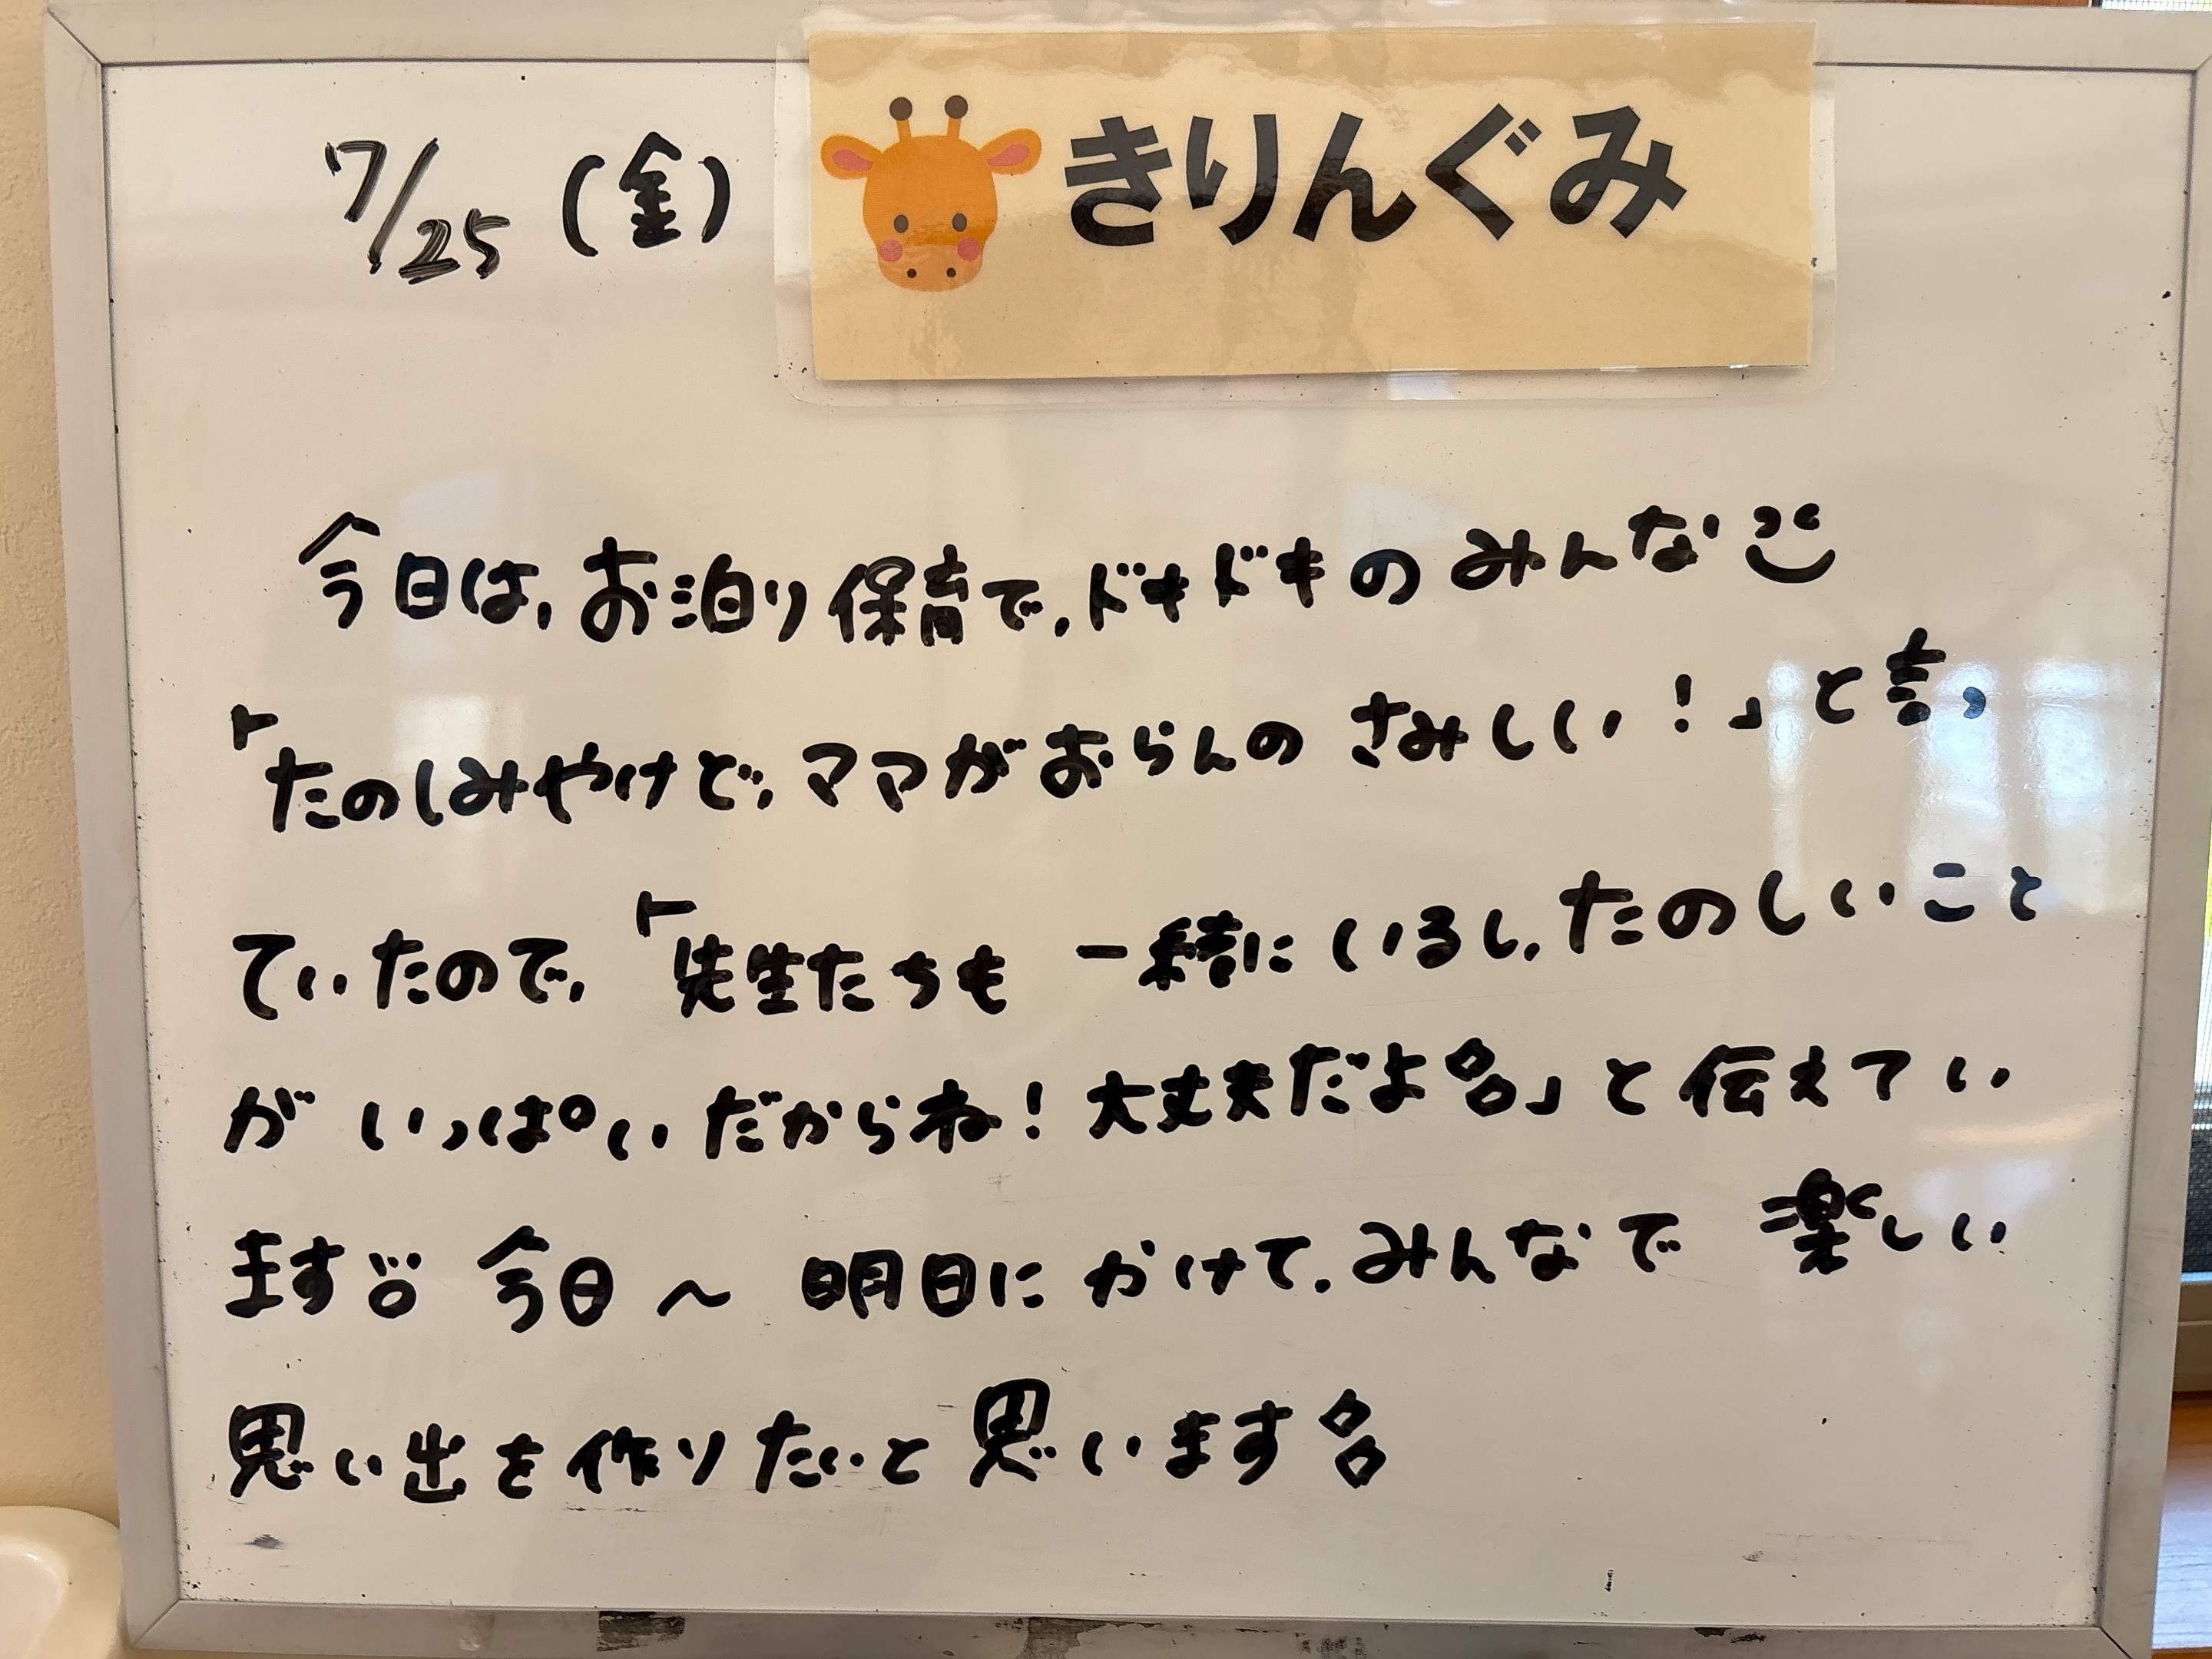 7/25 (金)
きりんぐみ
今日は、お泊り保育で、ドキドキのみんな
「たのしみやけど、ママがおらんの さみしい!」と言っ
ていたので、「先生たちも 一緒にいるし、たのしいこと
が いっぱいだからね!大丈夫だよ」と伝えてい
ます 今日〜明日にかけて、みんなで 楽しい
思い出を作りたいと思います